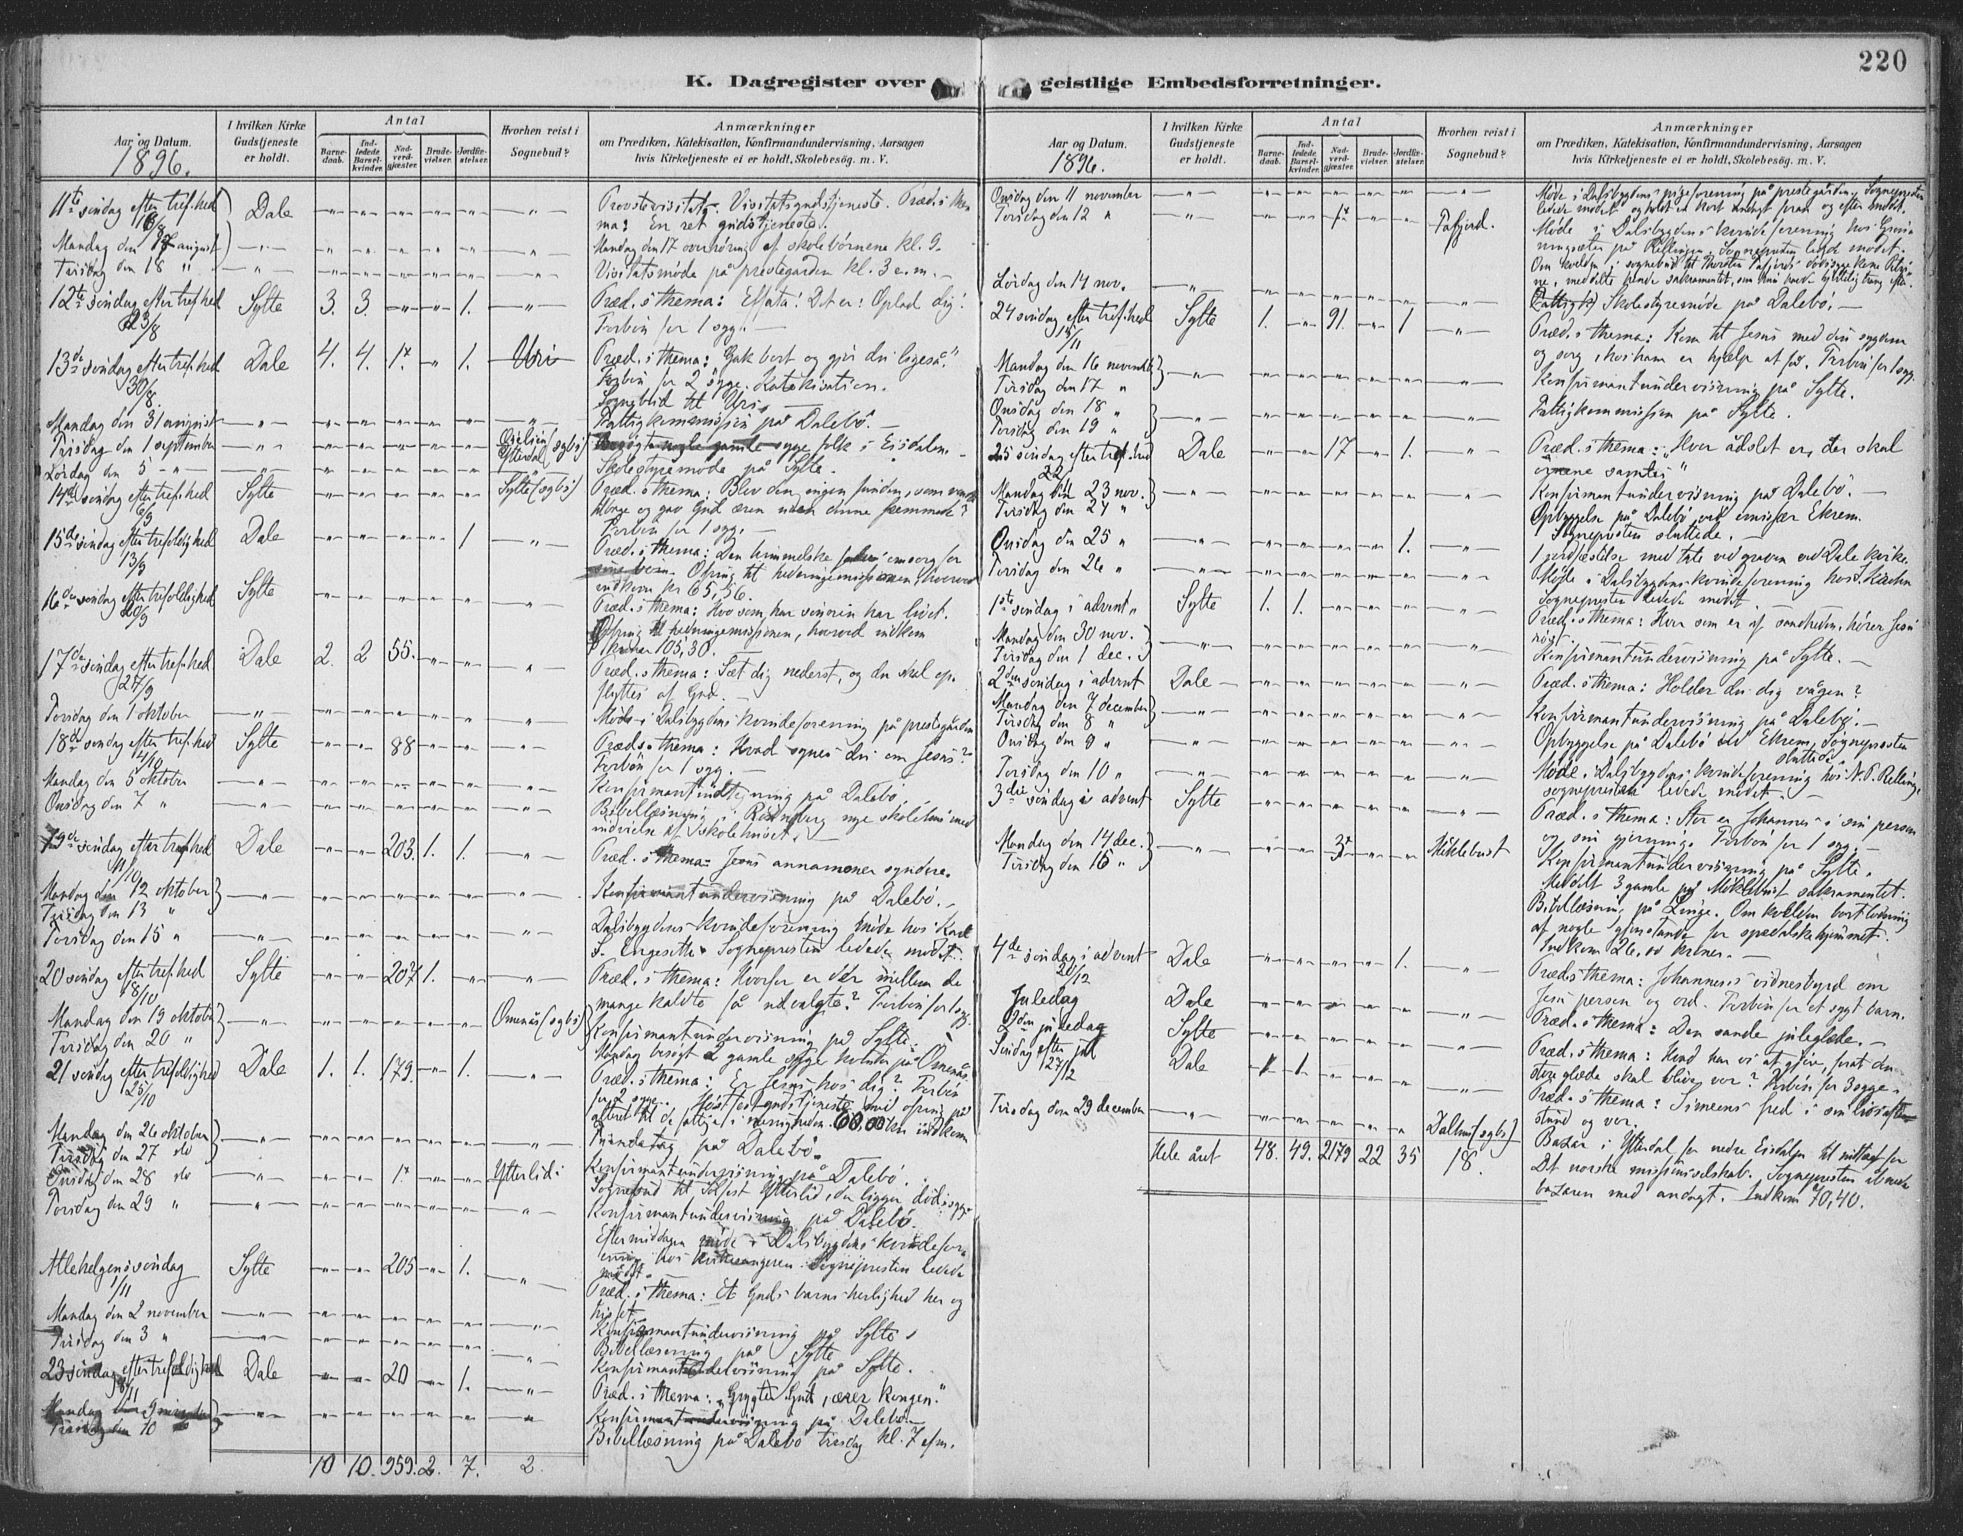 220
K. Dagregister over geistlige Embedsforretninger.
Aar og Datum.
1896.
I hvilken Kirke Gudstjeneste er holdt.
Antal
Barnedaab.
Indledede Barselkvinder.
Nadverdgjæster.
Brudevielser.
Jordfæstelser.
Hvorhen reist i Sognebud?
Anmærkninger
om Prædiken, Katekisation, Konfirmandundervisning, Aarsagen
hvis Kirketjeneste ei er holdt, Skolebesög. m. V.
11te söndag efter tref.hed 16/8 Dale Provstevisitats. Visitatsgudstjeneste. Præd. s thema: En ret gudstjeneste.
Mandag den 17 august Mandag den 17 overhöring af skolebörnene kl. 9.
Tirsdag den 18 " Visitatsmöde på prestegården kl. 3 e.m.
12te söndag efter tref.hed 23/8 Sylte 3. 3. 1. Præd. s thema: Effata! Det er: Oplad dig!
Forbön for 1 syg.
13de söndag efter tref.hed 30/8. Dale 4. 4. 1. 1. Uri Præd. s thema: "Gak bort og gjör du ligeså."
Forbön for 2 syge. Katekisation.
Sognebud til Uri.
Mandag den 31 august Fattigkommission på Dalebö.
Tirsdag den 1 september Ytterdal (sgbs) Besögte nogle gamle syge folk i Eisdalen.
Lördag den 5 Skolestyremöde på Sylte.
14de söndag efter tref.hed 6/9 Sylte Sylte (sgbs) Præd. s thema: Blev der ingen funden, som vendte
tilbage og gav Gud æren uden denne fremmede?
Forbön for 1 syg.
15de söndag efter trefoldighed 13/9 Dale 1 Præd. s thema: Den himmelske faders omsorg for
sine börn. Ofring til hedningemissionen, hvorved
indkom kr 65,56.
16de söndag efter trefoldighed 20/9 Sylte Præd. s thema: Hvo som har sönnen har livet.
Ofring til hedningemissionen, hvorved indkom
kroner 103,30.
17de söndag efter tref.hed 27/9 Dale 2. 2 55. Præd. s thema: Sæt dig nederst, og du skal op-
flyttes af Gud.
Torsdag den 1 oktober Möde i Dalsbygdens kvindeforening på prestegården
18de söndag efter tref.hed 4/10 Sylte 88 Præd. s thema: Hvad synes du om Jesus?
Forbön for 1 syg.
Mandag den 5 oktober på Dalebö
Onsdag den 7 " Bibellæsning i nye skolehus med
indvielse af skolehuset.
19de söndag efter tref.hed 11/10 Dale 203. 1. 1. Præd. s thema: Jesus annammer syndere.
Mandag den 12 oktober
Tirsdag den 13 " Konfirmantundervisning på Dalebö.
Torsdag den 15 " Dalsbygdens kvindeforening möde hos Karl
S. Engeseth. Sognepresten ledede mödet.
20 söndag efter tref.hed 18/10 Sylte 207 1. Præd. s thema: Hvorfor er der imellem de
mange kaldte få udvalgte? Forbön for 1 syg.
Mandag den 19 oktober
Tirsdag den 20 " Omenås (sgbs) Konfirmantundervisning på Sylte.
Mandag besögt 2 gamle syge kvinder på Omenås.
21 söndag efter trefoldighed 25/10 Dale 1. 1. 179. 1. Præd. s thema: Er Jesus hos dig? Forbön
for 2 syge. Höstfestgudstjeneste med ofring på
alteret til de fattige i menigheden. 60.00 kr indkom
Mandag den 26 oktober
Tirsdag den 27 do på Dalebö.
Onsdag den 28 do 1. Ytterlid Konfirmantundervisning på Dalebö.
Sognebud til Ytterlid, der ligger dödssyg.
Torsdag den 29 " Konfirmantundervisning på Dalebö.
Eftermiddagen möde i Dalsbygdens kvindefore-
ning hos kirkesangeren. Sognepresten ledede
mödet.
Allehelgenssöndag 1/11 Sylte 205 1. Præd. s thema: Et Guds barns herlighed her og
hisset.
Mandag den 2 november Konfirmantundervisning på Sylte
Bibellæsning på Sylte
Tirsdag den 3 " Konfirmantundervisning på Sylte.
23 söndag efter trefoldighed 8/11 Dale 20 1. Præd. s thema: "Frygter Gud, ærer kongen."
Mandag den 9 november
Tirsdag den 10 Konfirmantundervisning på Dalebö
Bibellæsning på Dalebö tirsdag kl. 7 efm.
10 10. 959. 2. 7. 2.
Aar og Datum.
1896.
I hvilken Kirke Gudstjeneste er holdt.
Antal
Barnedaab.
Indledede Barselkvinder.
Nadverdgjæster.
Brudevielser.
Jordfæstelser.
Hvorhen reist i Sognebud?
Anmærkninger
om Prædiken, Katekisation, Konfirmandundervisning, Aarsagen
hvis Kirketjeneste ei er holdt, Skolebesög. m. V.
Onsdag den 11 november Möde i Dalsbygdens pigeforening på prestegården. Sognepresten
ledede mödet og holdt en kort andagt foran og efter mödet.
Torsdag den 12 " 1 Tafjord. Möde i Dalsbygdens kvindeforening hos
på Relling. Sognepresten ledede mödet.
Om kvelden i sognebud til
meddelte hende sakramentet, som hun havde
Lördag den 14 nov. Skolestyremöde på Dalebö.
24 söndag efter tref.hed 15/11 Sylte 1. 91. 1 Præd. s thema: Kom til Jesus med din sygdom
og sorg, hos ham er hjælp at få. Forbön for 1 syg.
Mandag den 16 november
Tirsdag den 17 " Konfirmantundervisning på Sylte.
Onsdag den 18 "
Torsdag den 19 " Fattigkommission på Sylte.
25 söndag efter tref.hed 22/11 Dale 17 1. Præd. s thema: "Hvor ådslet er, der skal
örnene samles"
Mandag den 23 nov.
Tirsdag den 24 " Konfirmantundervisning på Dalebö.
Opbyggelse på Dalebö ved emissær Ekrem.
Sognepresten sluttede.
Onsdag den 25 " 1. 1 jordfæstelse med tale ved graven ved Dale kirke.
Torsdag den 26 " Möde i Dalsbygdens kvindeforening hos
Sognepresten ledede mödet.
1ste söndag i advent " Sylte 1. 1. Præd. s thema: Hver som er af sandheden, hörer Jesu
röst.
Mandag den 30 nov.
Tirsdag den 1 dec. Konfirmantundervisning på Sylte.
2den söndag i advent Dale Præd. s thema: Holder du dig vågen?
Mandag den 7 december
Tirsdag den 8 " Konfirmantundervisning på Dalebö.
Onsdag den 9 " Opbyggelse på Dalebö ved Ekrem. Sognepresten
sluttede.
Torsdag den 10 " Möde i Dalsbygdens kvindeforening hos N. P. Relling,
sognepresten ledede mödet.
3die söndag i advent Sylte Præd. s thema: Stor er Johannes i sin person
og sin gjerning. Forbön for 1 syg.
Mandag den 14 dec.
Tirsdag den 15 " 3 Miklebust Konfirmantundervisning på Sylte.
Meddelt 3 gamle på Miklebust sakramentet.
Bibellæsning på Linge. Om kvelden bortlodning
af nogle gjenstande for spedalskhjemmet.
Indkom 26,00 kroner.
4de söndag i advent 20/12 Dale 1. Præd. s thema: Johannes's vidnesbyrd om
Jesu person og ord. Forbön for et sygt barn.
Juledag Dale Præd. s thema: Den sande juleglæde.
2den juledag Sylte Præd. s thema: Hvad har vi at gjöre, forat den
store glæde skal blive vor? Forbön for 3 syge.
Söndag efter jul 27/12 Dale 1 1 Præd. s thema: Simeons fred i sin livsaften-
stund og vor.
Tirsdag den 29 december (sgbs) Bazar i Ytterdal for nedre Eisdalen til indtægt for
Det norske missionsselskab. Sognepresten åbnede
bazaren med andagt. Indkom 70,40.
Hele året 48. 49. 2179 22 35 18.